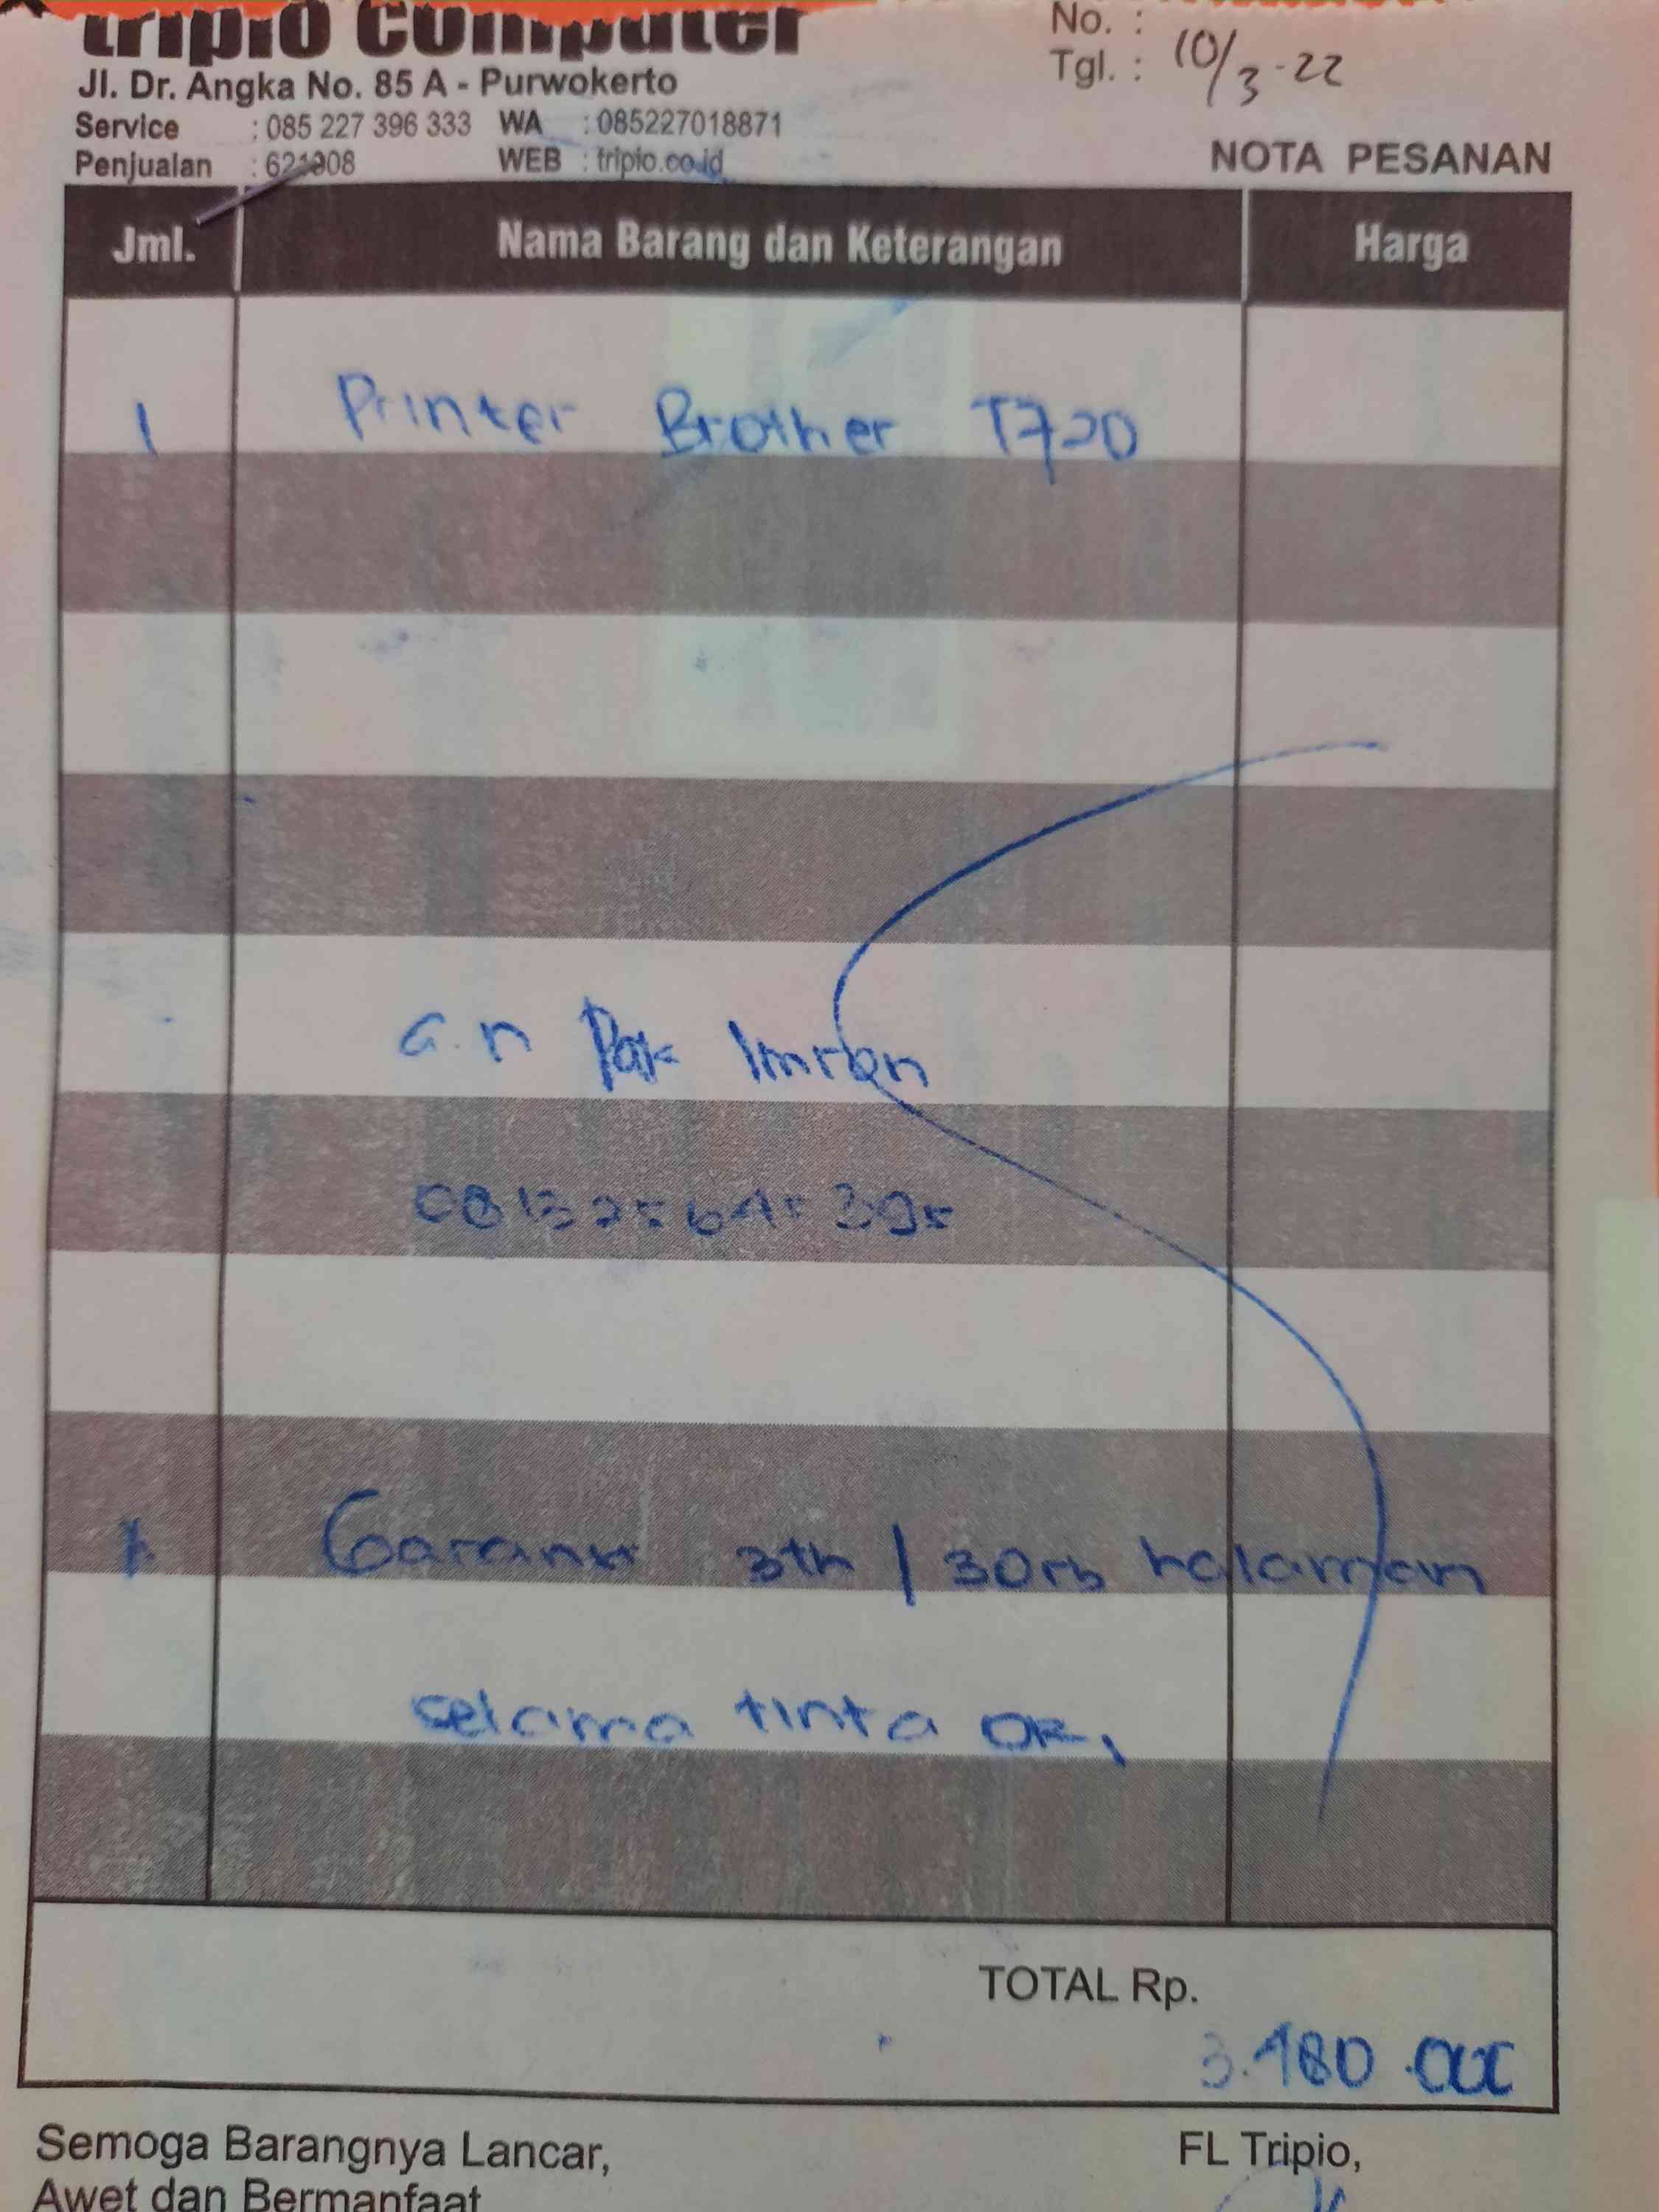 tripio computer
Jl. Dr. Angka No. 85 A - Purwokerto
Service : 085 227 396 333 WA : 085227018871
Penjualan : 621908 WEB : tripio.co.id
No. :
Tgl. : 10/3-22
NOTA PESANAN
Jml. Nama Barang dan Keterangan Harga
1 Printer Brother T720
a.n Pak Imran
1 Garansi 3th / 30rb halaman
selama tinta OK,
TOTAL Rp.
Semoga Barangnya Lancar,
Awet dan Bermanfaat
FL Tripio,